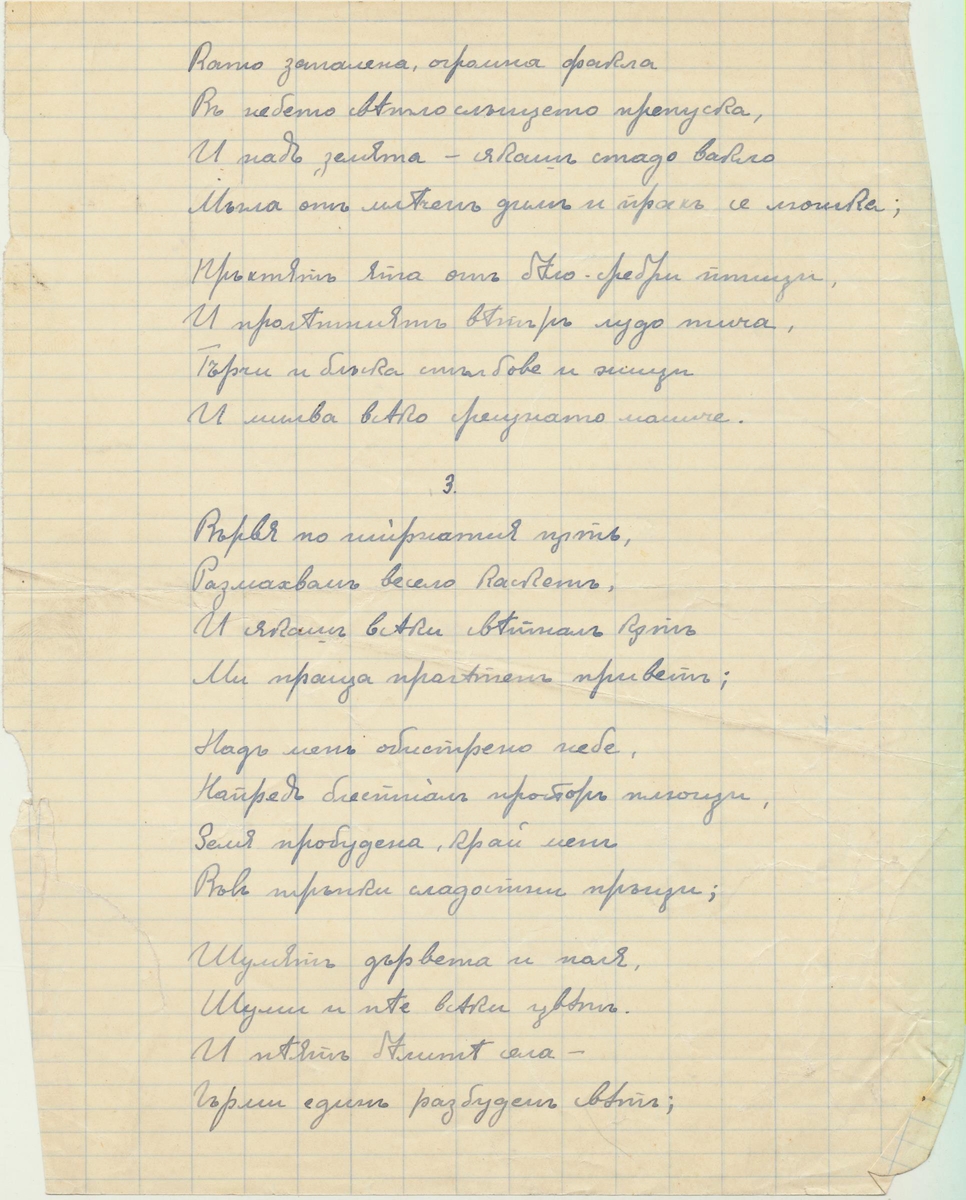 Като запалена, огромна факла
Въ небето свѣтло слънцето препуска,
И надъ земята – якашъ стадо вакло
Мъгла отъ млѣченъ димъ и прахъ се люшка;
Кръктятъ ята отъ бѣло-сребри птици,
И пролѣтниятъ вѣтъръ лудо тича,
Търчи и блъска стълбове и жици
И милва всѣко
3.
Вървя по ширнатия пѫть,
Размахвамъ весело каскетъ,
И якашъ всѣки свѣтналъ кѫтъ
Ми праща пролѣтенъ приветъ;
Надъ менъ обистрено небе,
Напредъ блестналъ просторъ плющи,
Земя пробудена, край менъ
Въвъ тръпки сладостни пръщи;
Шумятъ дървета и поля,
Шуми и пѣе всѣки цвѣтъ.
И пѣятъ бѣлитѣ села –
Гърми единъ разбуденъ свѣтъ;